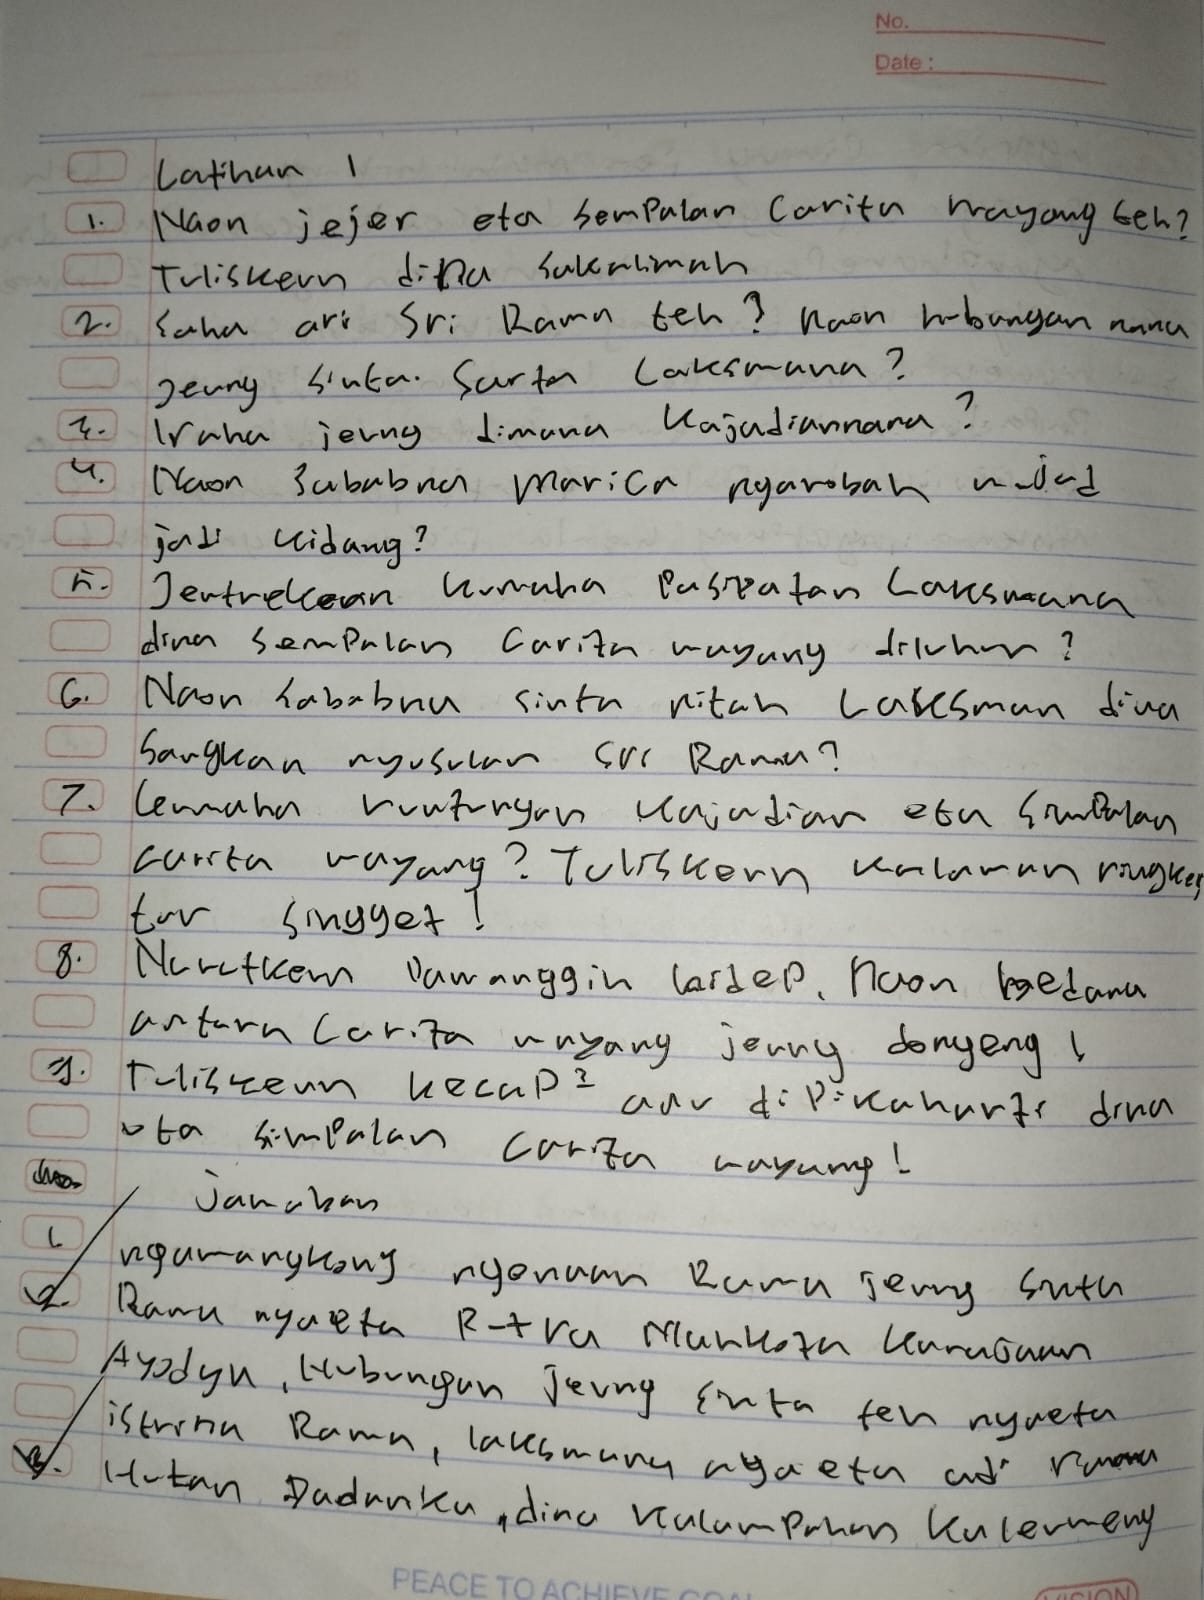 No.
Date :
Latihan 1
1. Naon jejer eta sempalan Carita wayang teh?
Tuliskeun dina sakalimah
2. Saha ari Sri Rama teh? Naon hubungan nana
jeung Sinta. Sarta Laksmana?
3. Iraha jeung dimana kajadiannana?
4. Naon Sababna Marica ngarobah wujud
jadi kidang?
5. Jentrekeun kumaha Pasipatan Laksmana
dina Sempalan Carita wayang diluhur?
6. Naon Sababna Sinta nitah Laksman dina
Sangkan nyusulan Sri Rama?
7. kumaha runtuyan kajadian eta Simpalan
carita wayang? Tuliskeun kalawan ringkes
tur singget!
8. Nurutkeun laidep. Naon bedana
antara Carita wayang jeung dongeng!
9. Tuliskeun kecap² anu di dina
eta simpalan carita wayang!
Jawaban
1. nyonoan Rama jeung Sinta
2. Rama nyaeta Putra Mahkota Karajaan
Ayodya, Hubungan jeung Sinta teh nyaeta
istrina Rama, laksmana nyaeta adi
3. Hutan Dadanku, dina
PEACE TO ACHIEVE GOAL
VISION